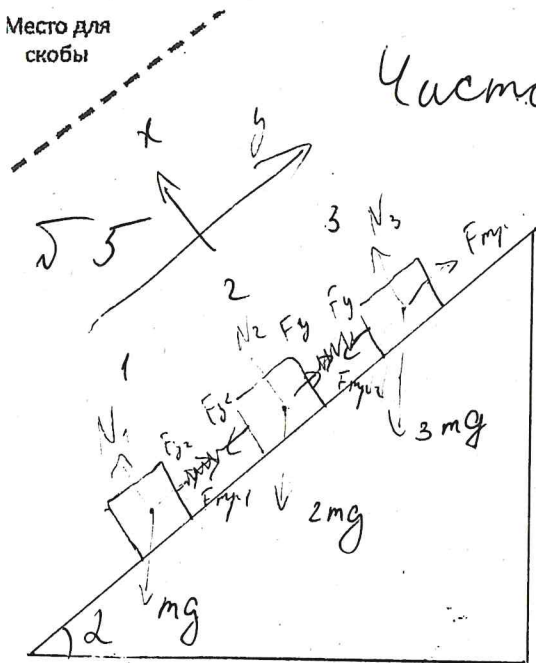 Место для
скобы
Чисто
x
y
√5
3 N₃
Fтр
2
N₂ Fy Fy
1
Fтр2
3mg
N₁ Fy² Fy²
Fтр1
2mg
mg
α